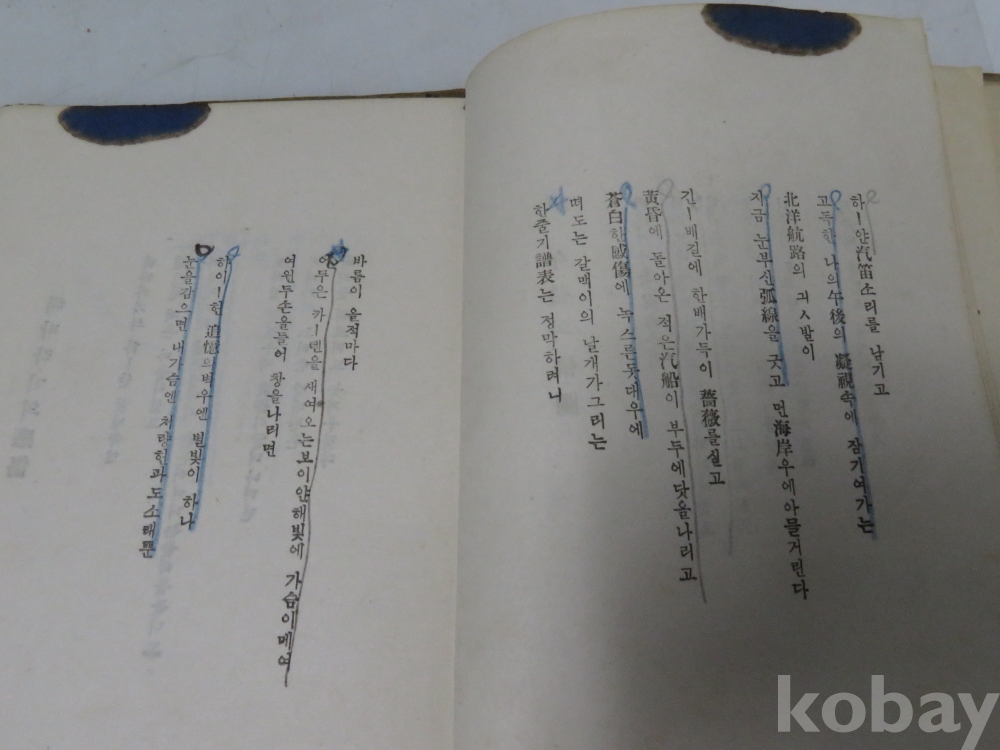 하ー얀 汽笛소리를 남기고
고독한 나의 午後의 凝視속에 잠기여가는
北洋航路의 긔ㅅ발이
지금 눈부신 弧線을 긋고 먼 海岸우에 아믈거린다
긴ー배길에 한배가득이 薔薇를 실고
黃昏에 돌아온 적은 汽船이 부두에 닷을 나리고
蒼白한 感傷에 녹스른 돗대우에
떠도는 갈맥이의 날개가 그리는
한줄기 譜表는 정막하려니
바름이 울적마다
어두은 카ー텐을 새여오는 보이얀 해빛에 가슴이 메여
여윈 두손을 들어 창을 나리면
하이ー헌 追憶의 벽우엔 별빛이 하나
눈을 감으면 내가슴엔 처량헌 파도소래뿐
kobay